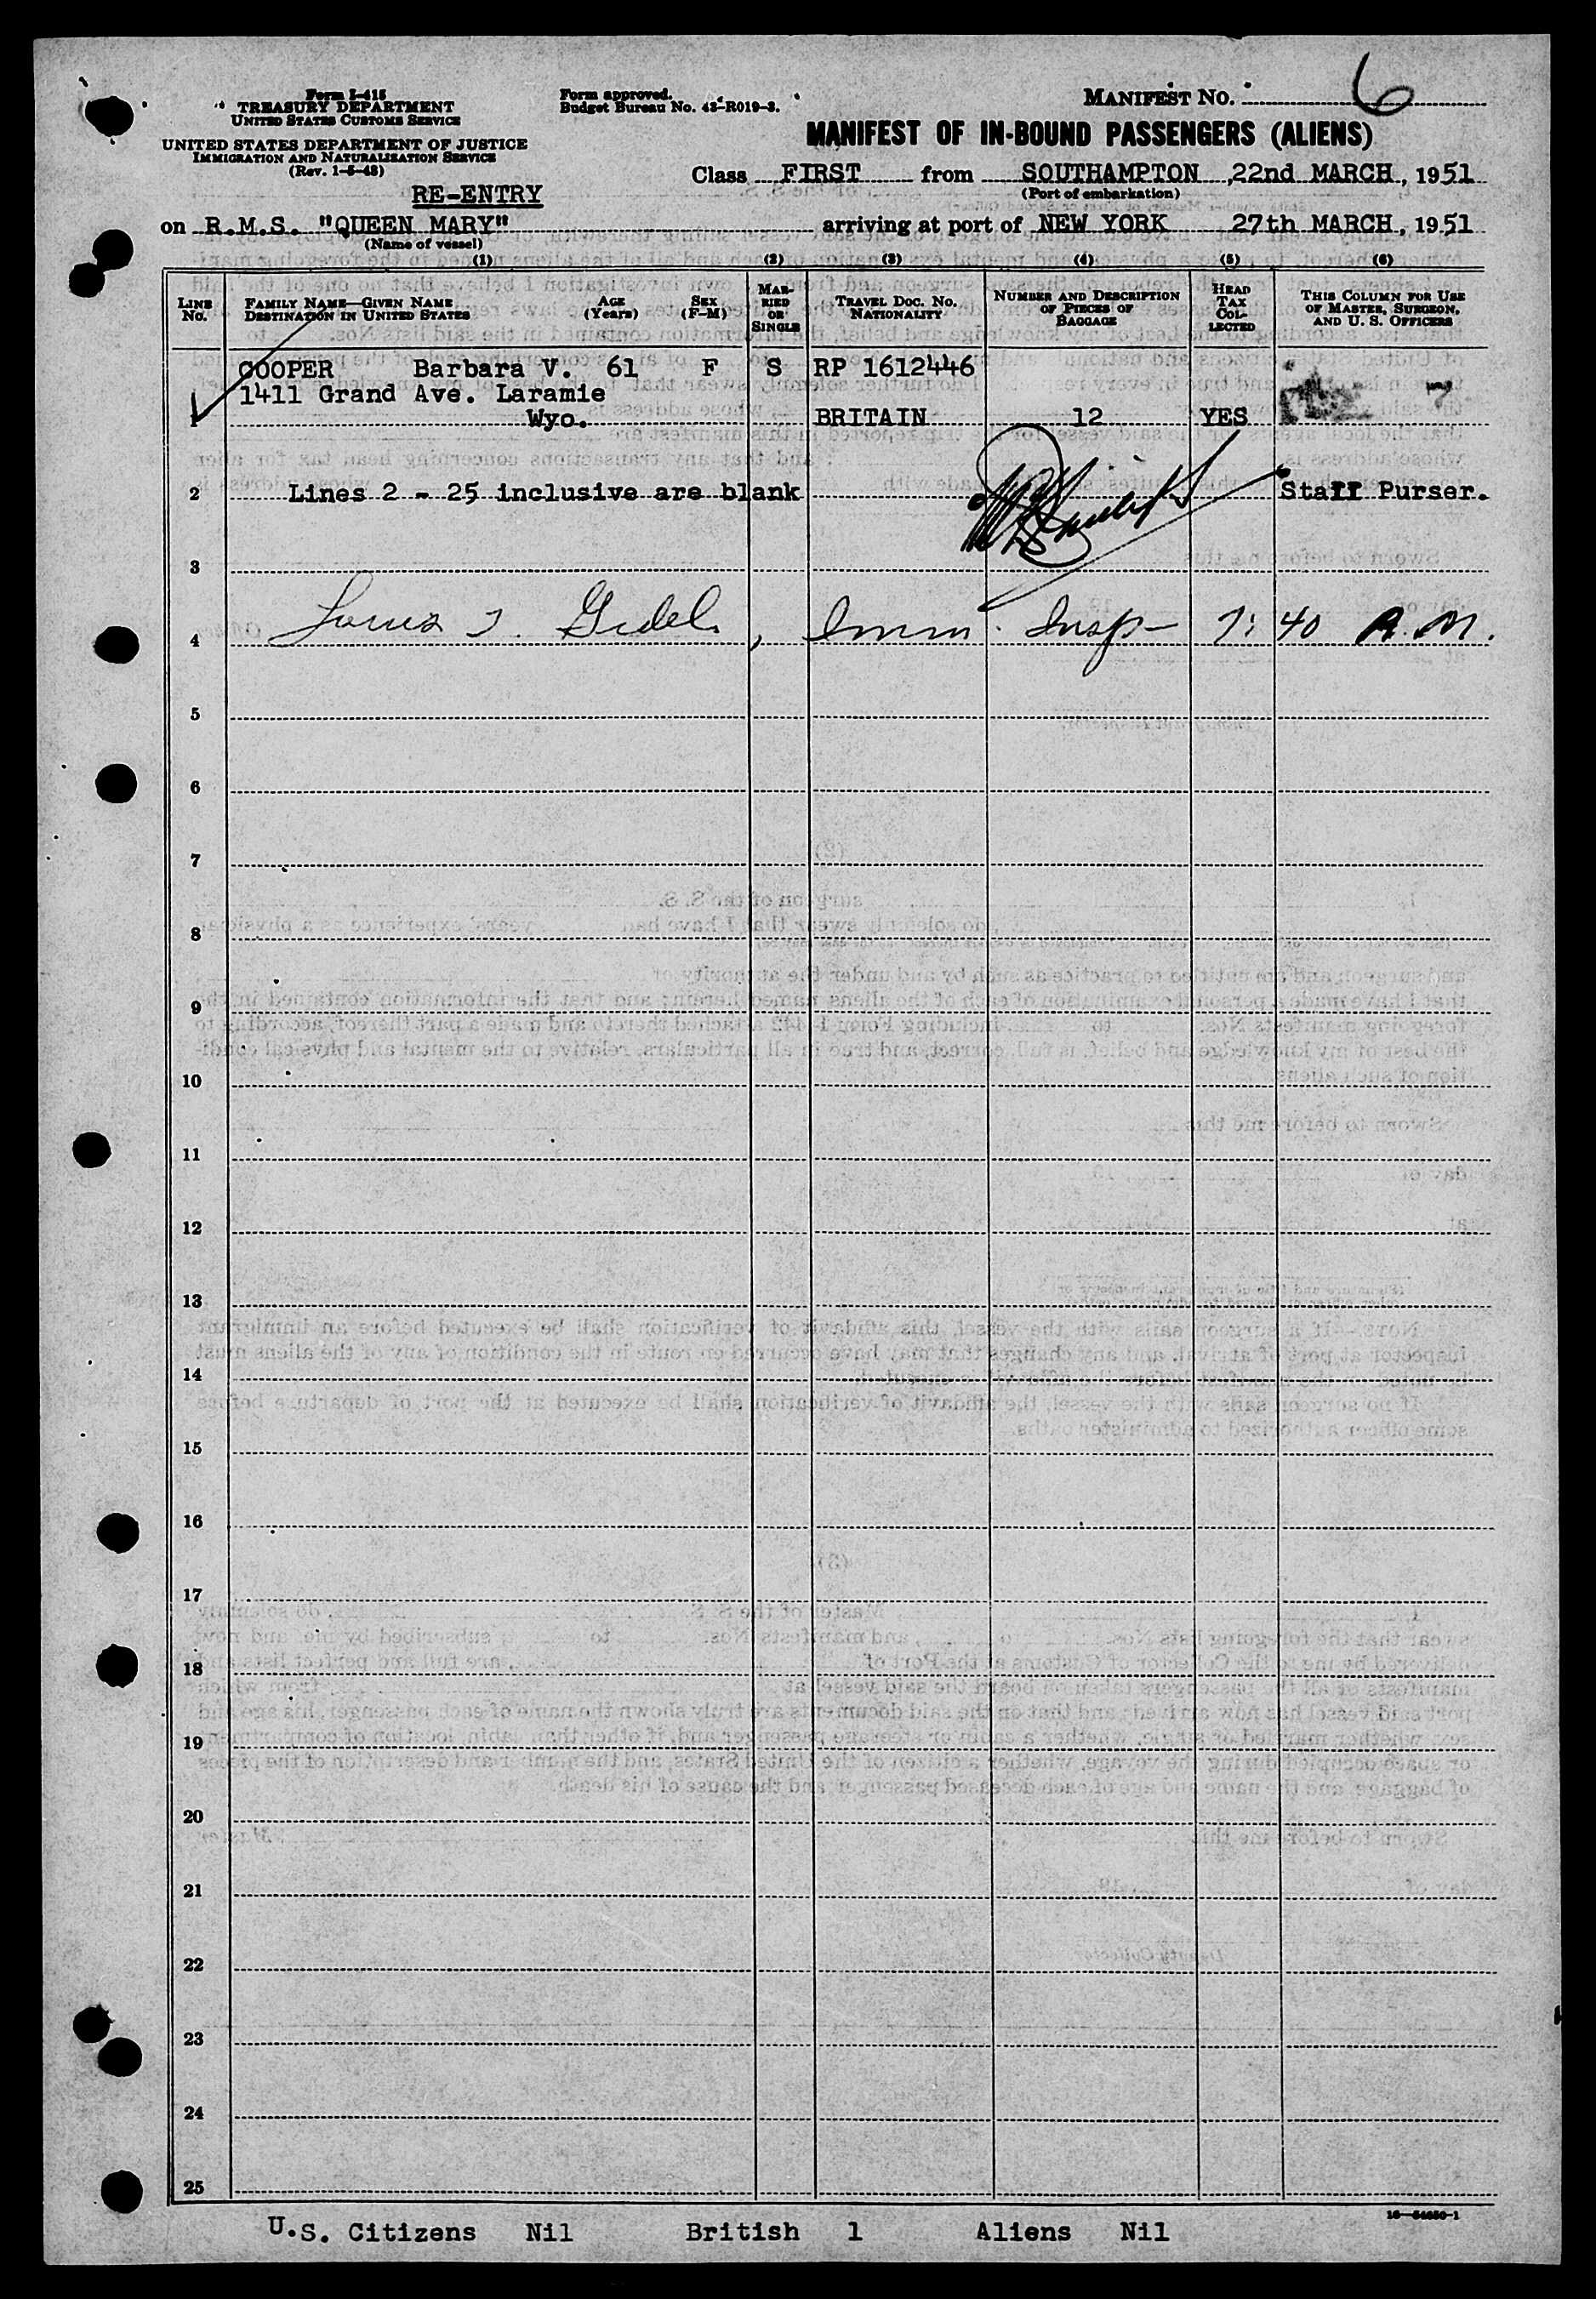 Form I-415
TREASURY DEPARTMENT
UNITED STATES CUSTOMS SERVICE
UNITED STATES DEPARTMENT OF JUSTICE
IMMIGRATION AND NATURALIZATION SERVICE
(Rev. 1-5-48)
Form approved.
Budget Bureau No. 43-R019-3.
MANIFEST NO. 6
MANIFEST OF IN-BOUND PASSENGERS (ALIENS)
Class FIRST from SOUTHAMPTON, 22nd MARCH, 1951
(Port of embarkation)
RE-ENTRY
on R.M.S. "QUEEN MARY" arriving at port of NEW YORK 27th MARCH, 1951
(Name of vessel)
(1) (2) (3) (4) (5) (6)
LINE No. FAMILY NAME—GIVEN NAME DESTINATION IN UNITED STATES AGE (Years) SEX (F-M) MARRIED OR SINGLE TRAVEL DOC. NO. NATIONALITY NUMBER AND DESCRIPTION OF PIECES OF BAGGAGE HEAD TAX COLLECTED THIS COLUMN FOR USE OF MASTER, SURGEON, AND U. S. OFFICERS
COOPER Barbara V. 61 F S RP 1612446
1411 Grand Ave. Laramie
1 Wyo. BRITAIN 12 YES 7
2 Lines 2 - 25 inclusive are blank Staff Purser.
3
4 Imm. Insp- 7:40 A.M.
5
6
7
8
9
10
11
12
13
14
15
16
17
18
19
20
21
22
23
24
25
U.S. Citizens Nil British 1 Aliens Nil